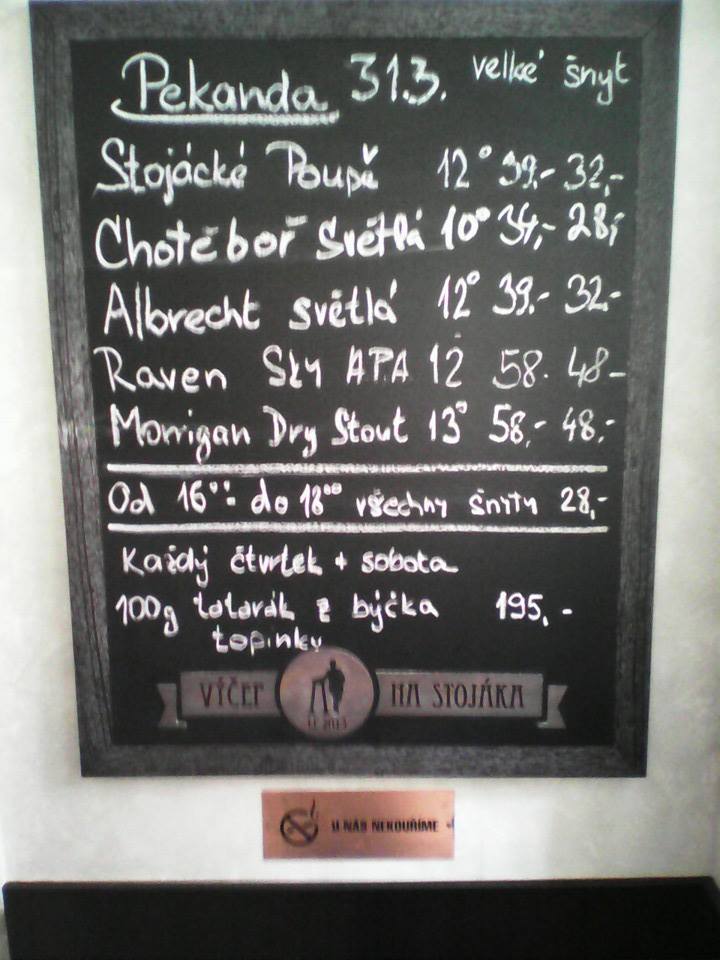 Pekanda 31.3. velké šnyt
Stojácké Poupě 12° 39.- 32,-
Chotěboř světlá 10° 34,- 28,-
Albrecht světlá 12° 39.- 32.-
Raven Sky APA 12 58. 48-
Morrigan Dry Stout 13° 58,- 48.-
Od 16°° do 18°° všechny šnyty 28,-
Každý čtvrtek + sobota
100g tatarák z býčka 195,-
topinky
VÝČEP NA STOJÁKA
U NÁS NEKOUŘÍME